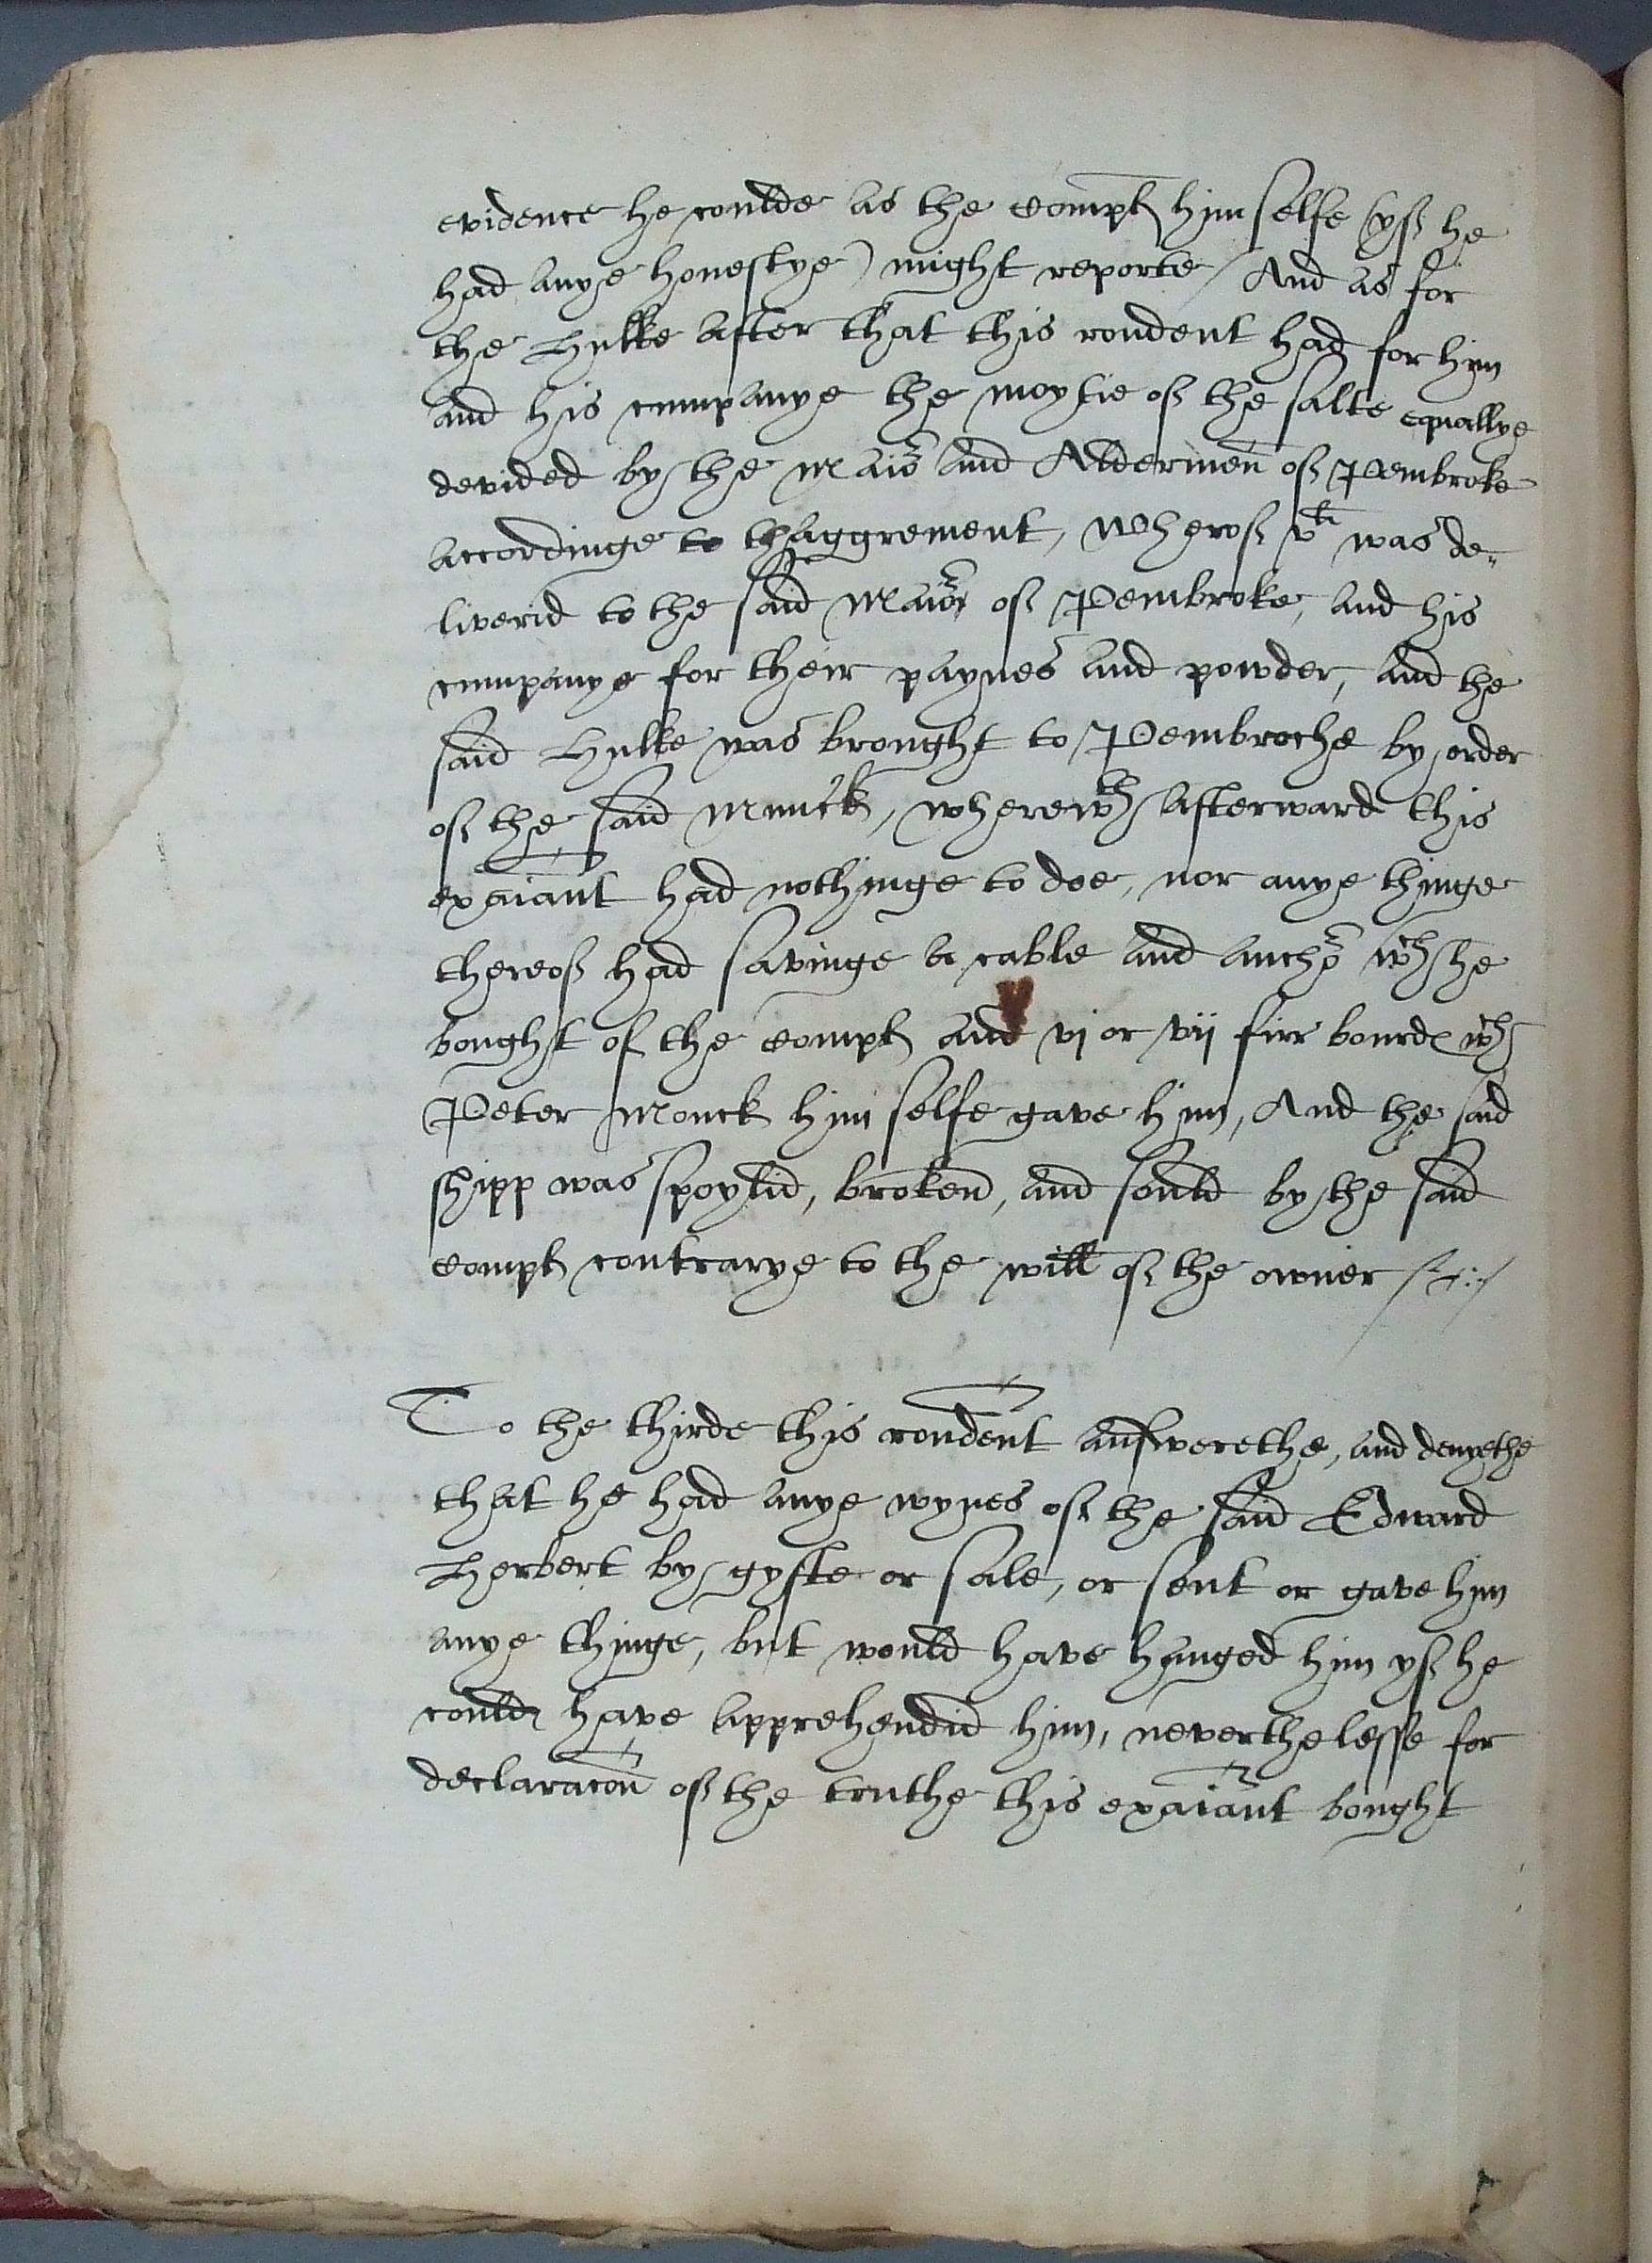 evidence he coulde as the compt him selfe (yf he
had anye honestye) might reporte / And as for
the Hulke after that this rondent had for him
and his cumpanye the moytie of the salte equallye
devided by the Maio and Aldermen of Pembroke
accordinge to thaggrement, Wherof vli was de„
liverid to the said Maior of Pembroke, and his
cumpanye for their paynes and powder, and the
said Hulke was brought to Pembroche by order
of the said Munck, wherewth afterward this
exaiant had nothinge to doe, nor anye thinge
thereof had savinge a cable and ancho wch he
bought of the compt and vj or vij firr bourdes wch
Peter Monck him selfe gave him, And the said
shipp was spoylid, broken, and sould by the said
compt contrarye to the will of the owner
To the thirde this rondent answerethe, and denyethe
that he had anye wynes of the said Edward
Herbert by gyfte or sale, or sent or gave him
anye thinge, but would have hanged him yf he
could have apprehendid him, neverthelesse for
declaracon of the truthe this exaiant bought